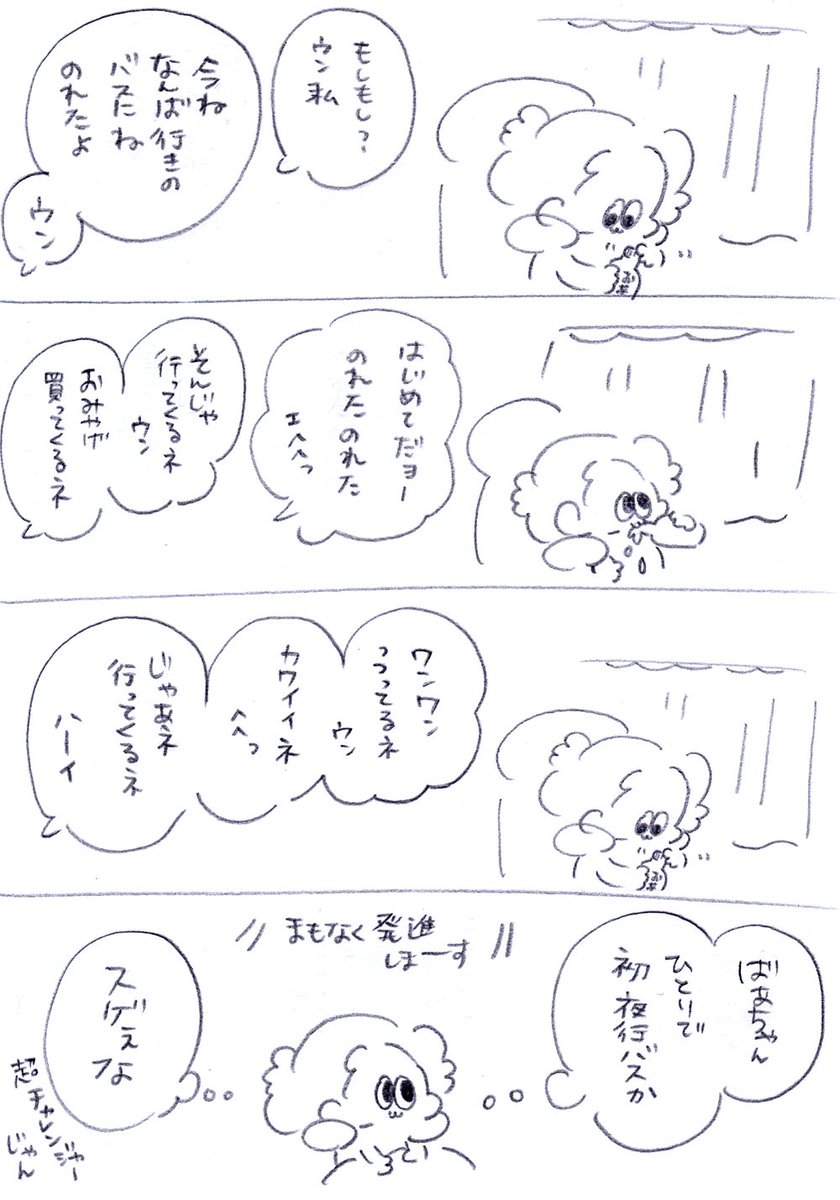 もしもし?
ウン私
今ね
なんば行きの
バスにね
のれたよ
ウン
お茶
はじめてだヨー
のれたのれた
エヘヘっ
そんじゃ
行ってくるネ
ウン
おみやげ
買ってくるネ
ワンワン
っつってるネ
ウン
カワイイネ
へへっ
じゃあネ
行ってくるネ
ハーイ
お茶
ばあちゃん
ひとりで
初夜行バスか
まもなく発進
しまーす
スゲえな
超チャレンジャー
じゃん